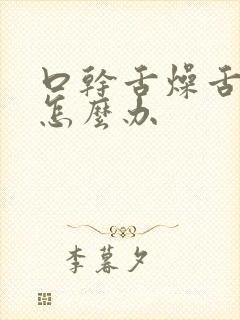 口幹舌燥舌
怎麼办
李暮夕